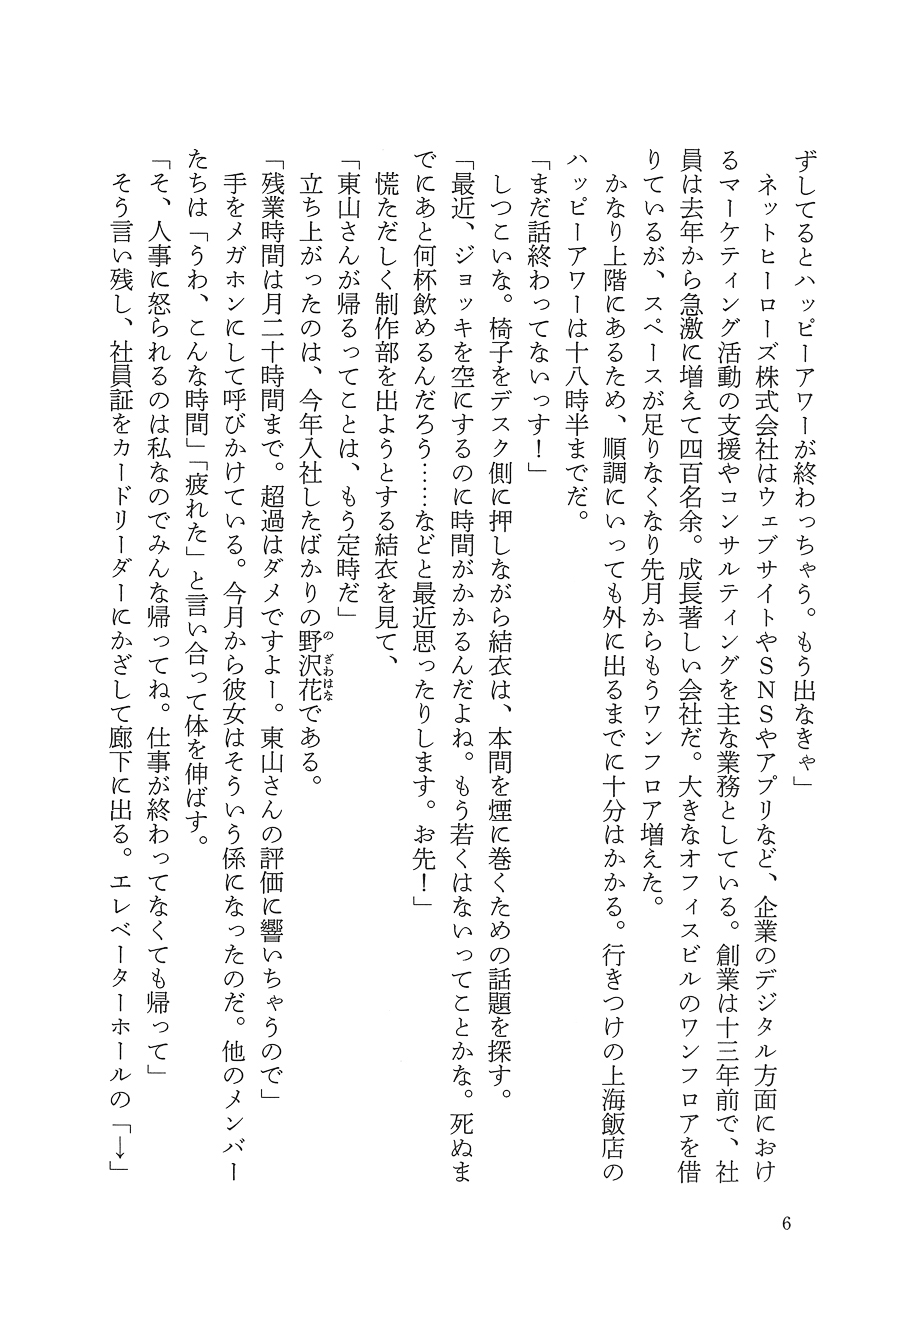 ずしてるとハッピーアワーが終わっちゃう。もう出なきゃ」
ネットヒーローズ株式会社はウェブサイトやSNSやアプリなど、企業のデジタル方面におけ
るマーケティング活動の支援やコンサルティングを主な業務としている。創業は十三年前で、社
員は去年から急激に増えて四百名余。成長著しい会社だ。大きなオフィスビルのワンフロアを借
りているが、スペースが足りなくなり先月からもうワンフロア増えた。
かなり上階にあるため、順調にいっても外に出るまでに十分はかかる。行きつけの上海飯店の
ハッピーアワーは十八時半までだ。
「まだ話終わってないっす！」
しつこいな。椅子をデスク側に押しながら結衣は、本間を煙に巻くための話題を探す。
「最近、ジョッキを空にするのに時間がかかるんだよね。もう若くはないってことかな。死ぬま
でにあと何杯飲めるんだろう……などと最近思ったりします。お先！」
慌ただしく制作部を出ようとする結衣を見て、
「東山さんが帰るってことは、もう定時だ」
立ち上がったのは、今年入社したばかりの野沢花である。
のざわはな
「残業時間は月二十時間まで。超過はダメですよー。東山さんの評価に響いちゃうので」
手をメガホンにして呼びかけている。今月から彼女はそういう係になったのだ。他のメンバー
たちは「うわ、こんな時間」「疲れた」と言い合って体を伸ばす。
「そ、人事に怒られるのは私なのでみんな帰ってね。仕事が終わってなくても帰って」
そう言い残し、社員証をカードリーダーにかざして廊下に出る。エレベーターホールの「↓」
6